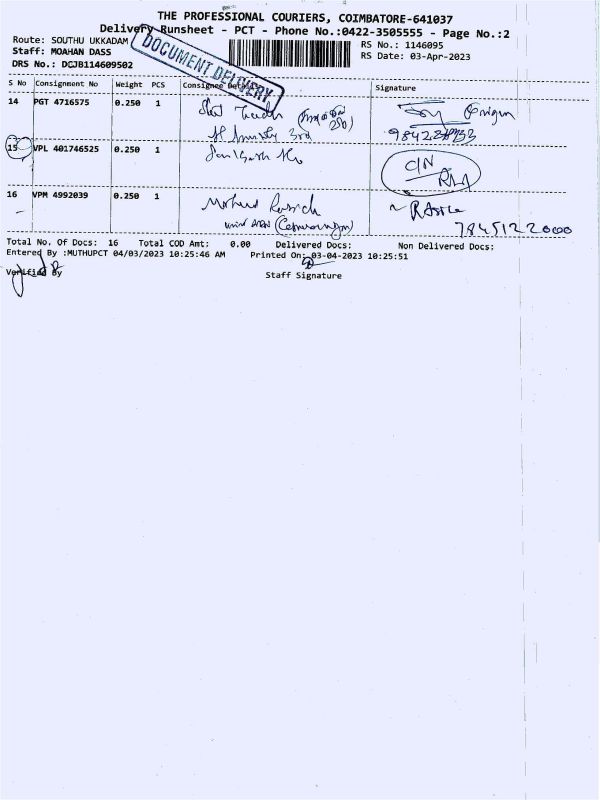 THE PROFESSIONAL COURIERS, COIMBATORE-641037
Delivery Runsheet - PCT - Phone No.:0422-3505555 - Page No.:2
Route: SOUTHU UKKADAM
RS No.: 1146095
Staff: MOAHAN DASS
RS Date: 03-Apr-2023
DRS No.: DCJB114609502
DOCUMENT DELIVERY
S No Consignment No Weight PCS Consignee Details Signature
14 PGT 4716575 0.250 1
15 VPL 401746525 0.250 1
C/N
16 VPM 4992039 0.250 1
7845122000
Total No. Of Docs: 16 Total COD Amt: 0.00 Delivered Docs: Non Delivered Docs:
Entered By :MUTHUPCT 04/03/2023 10:25:46 AM Printed On: 03-04-2023 10:25:51
Verified By
Staff Signature